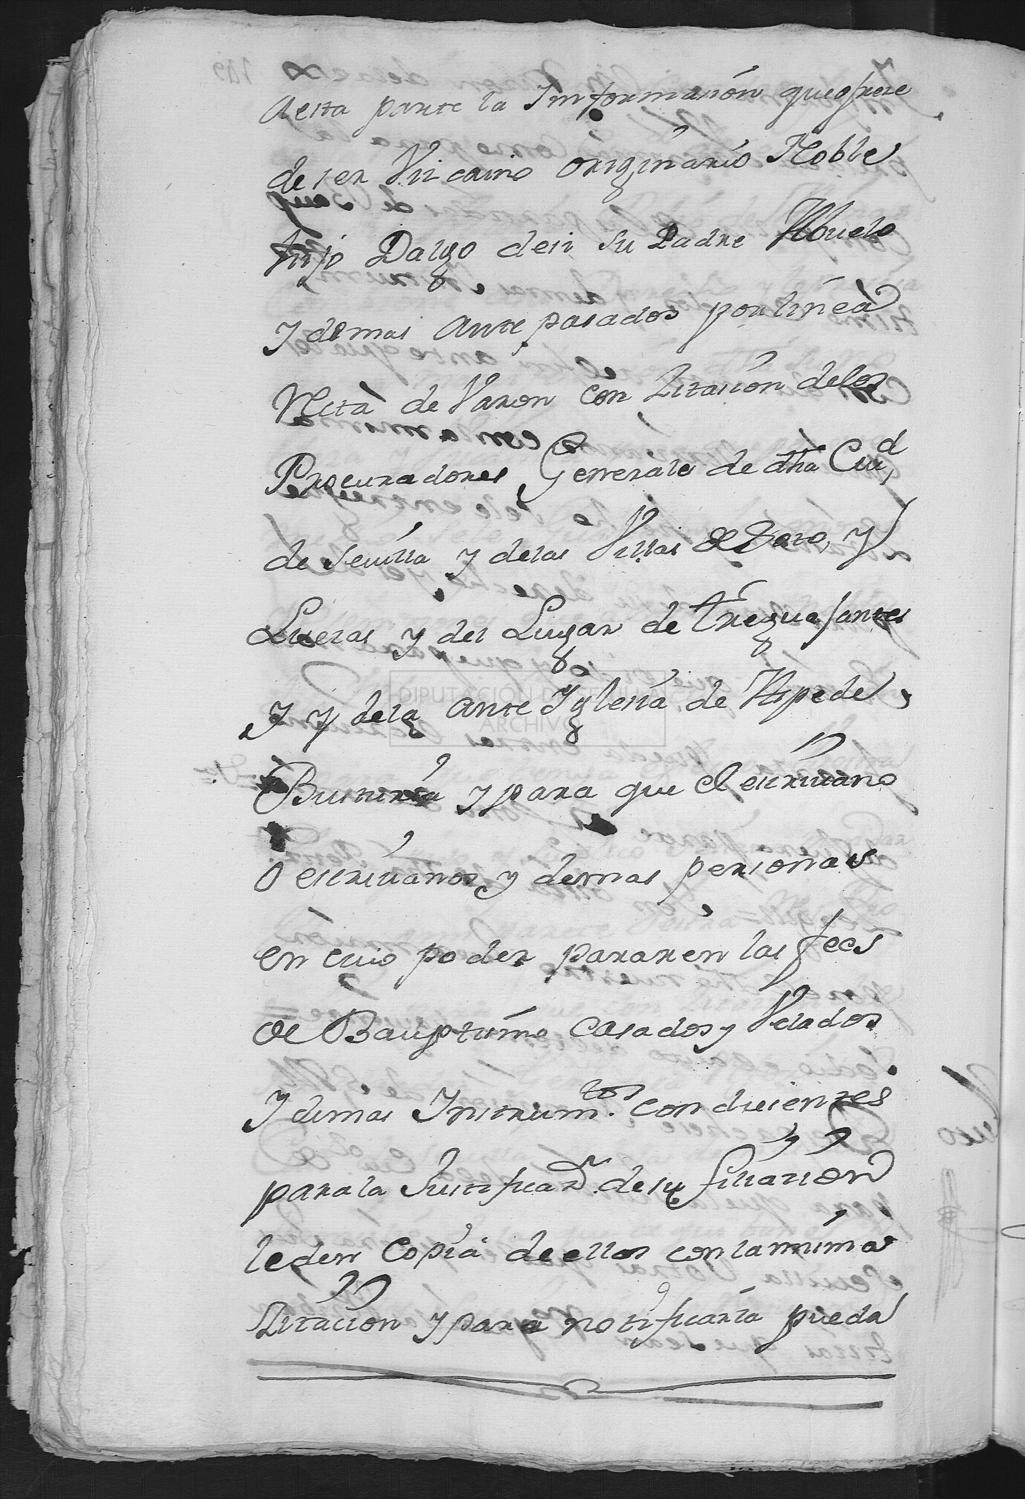 aesta parte la Informasion que ofrece
de ser Viscaino originario Noble
hijo Dalgo desi su Padre Abuelo
y demas Ante pasados por linea
Recta de Varon con Zitasion delos
Procuradores Generales de dha Ciud,
de Sevilla y delas Villas de Haro, y
Lueias y del Lugar de treguajantes
y y dela Ante Yglesia de Aspede
Busturia y para que el escrivano
o escrivanos y demas personas
en cuio poder pararen las fees
de Bauptismo Casados y Velados
y demas Instrumtos. conducientes
parala Justificazn. desu filiasion
leden copia de ellos con la misma
Zitacion y para notificarla pueda
DIPUTACION
ARCHIVO